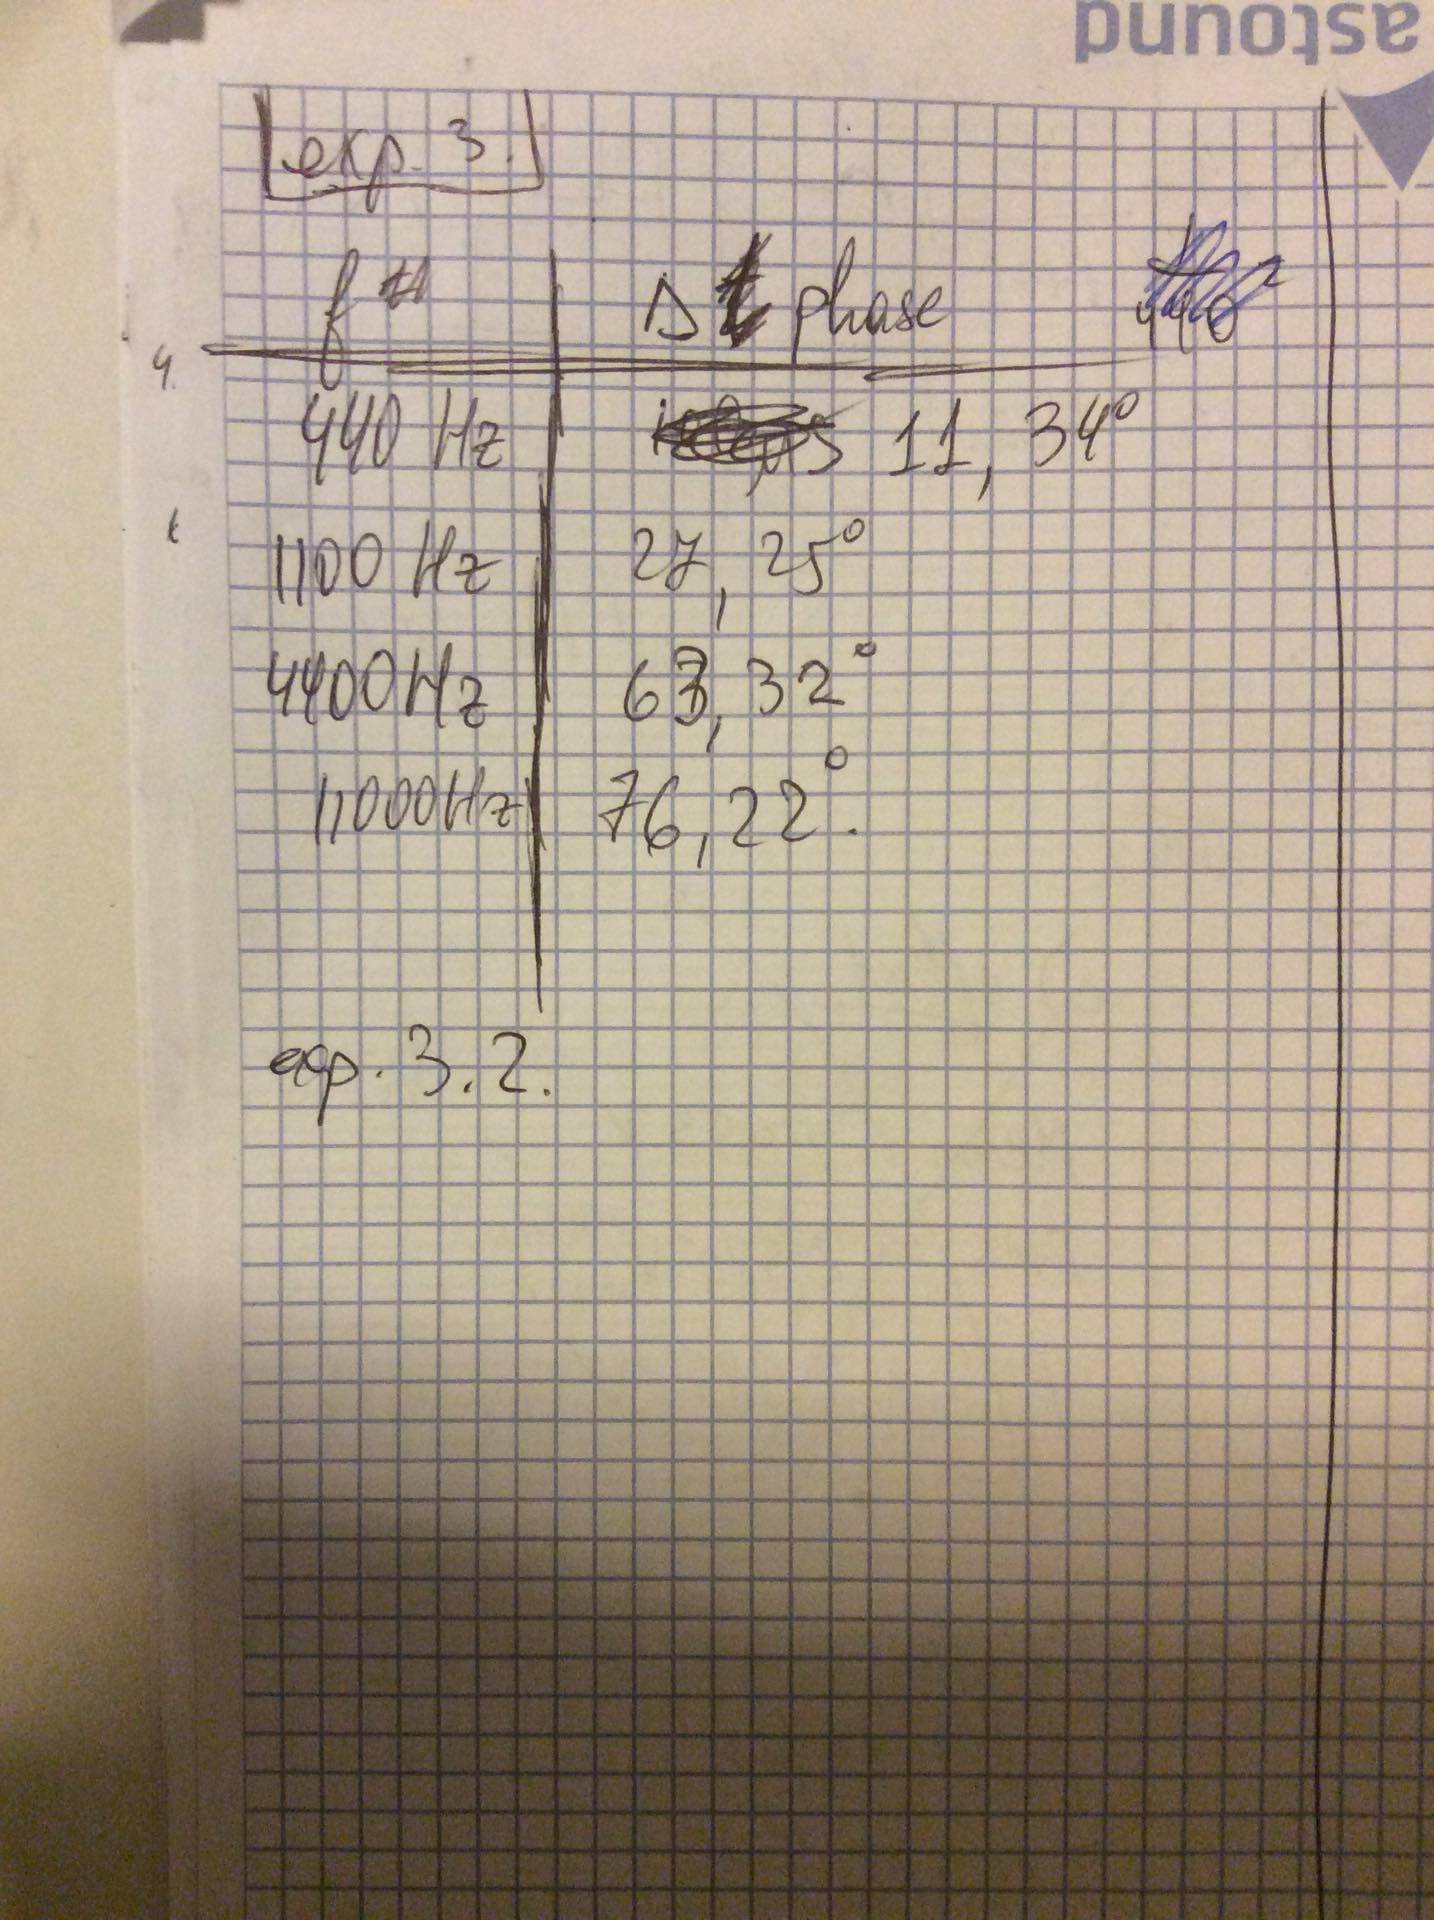 astound
exp. 3.
f Δ phase
4.
440 Hz 11,34°
1100 Hz 27,25°
4400 Hz 63,32°
11000 Hz 76,22°.
exp. 3.2.